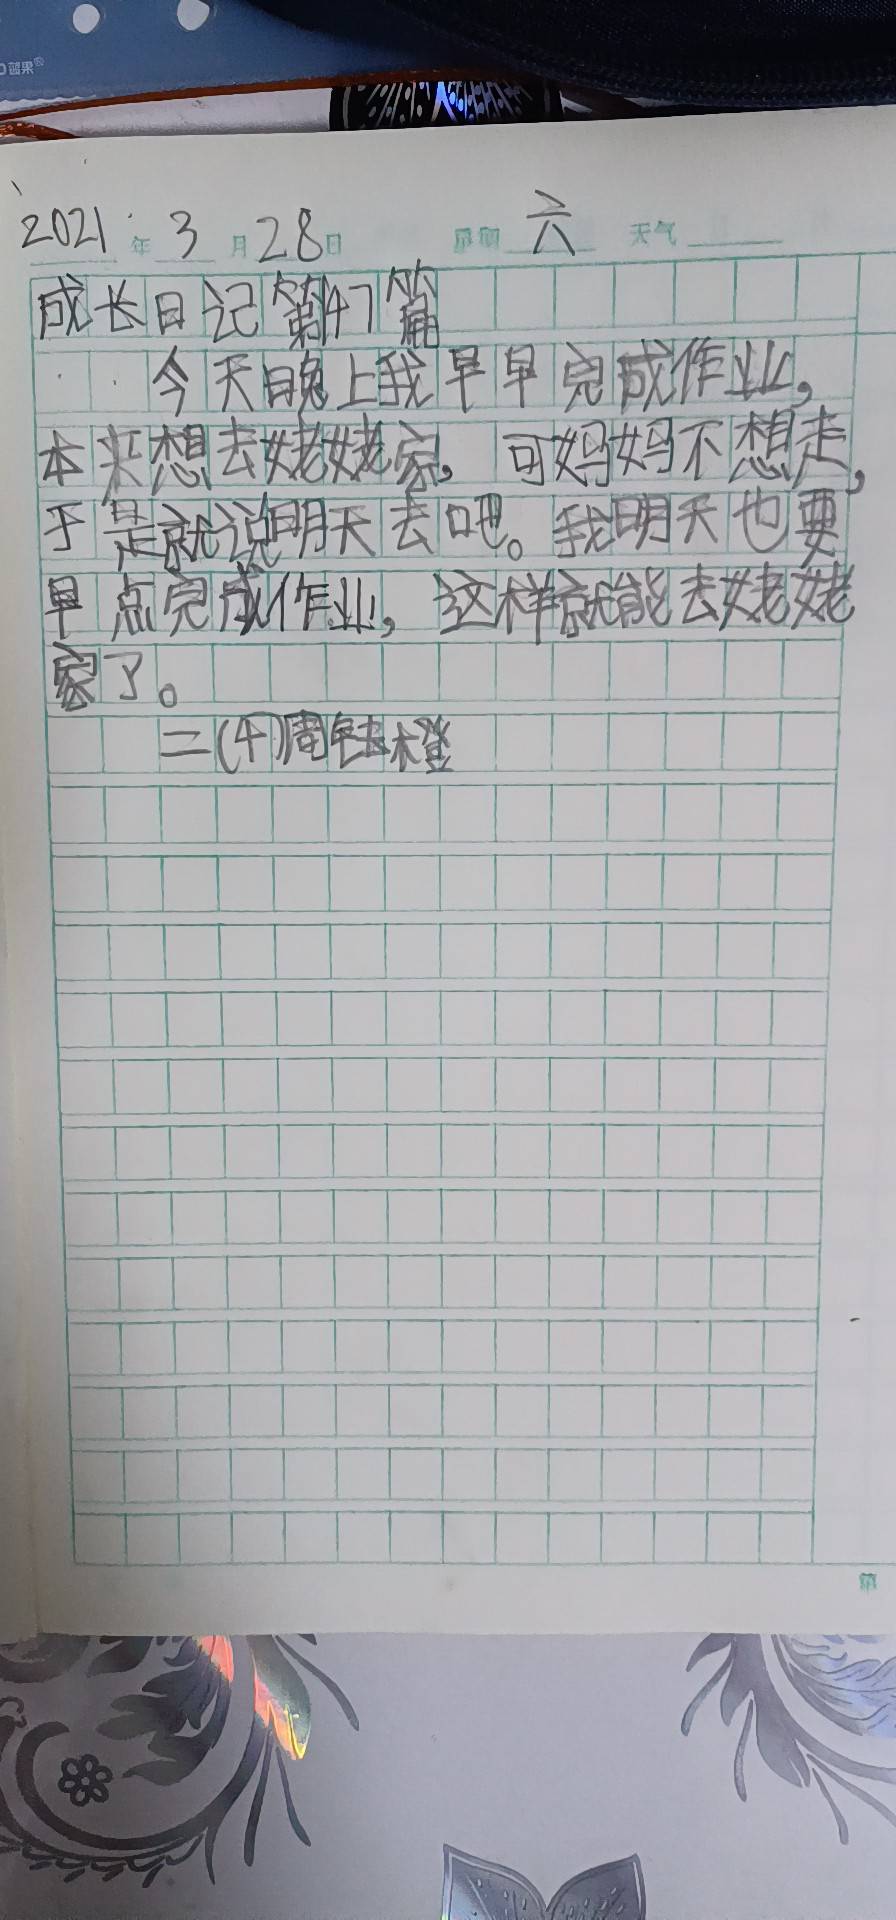 蓝果®
2021年3月28日 星期六 天气
成长日记第47篇
今天晚上我早早完成作业,
本来想去姥姥家,可妈妈不想走,
于是就说明天去吧。我明天也要
早点完成作业,这样就能去姥姥
家了。
二(4)周
第